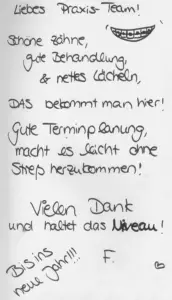 Liebes Praxis-Team!
Schöne Zähne,
gute Behandlung,
& nettes Lächeln,
DAS bekommt man hier!
Gute Terminplanung,
macht es leicht ohne
Streß herzukommen!
Vielen Dank
und haltet das Niveau!
Bis ins
neue Jahr!!!
F.